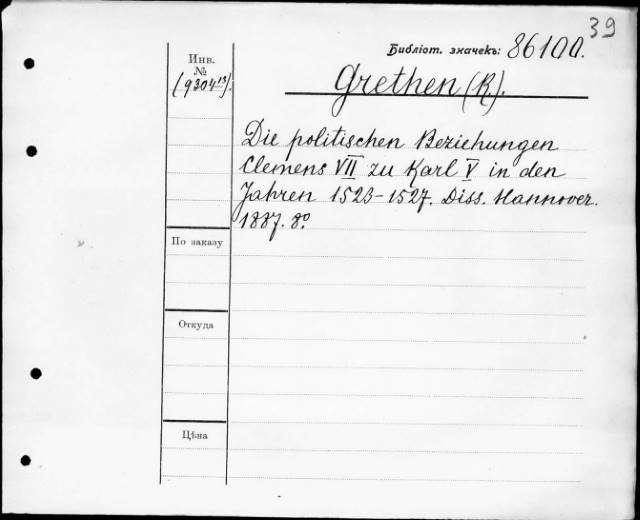 39
Библіот. значекъ: 86100.
Инв.
№
(9304¹³).
Grethen (R.).
Die politischen Beziehungen
Clemens VII zu Karl V in den
Jahren 1523-1527. Diss. Hannover.
1887. 8°
По заказу
Откуда
Цѣна